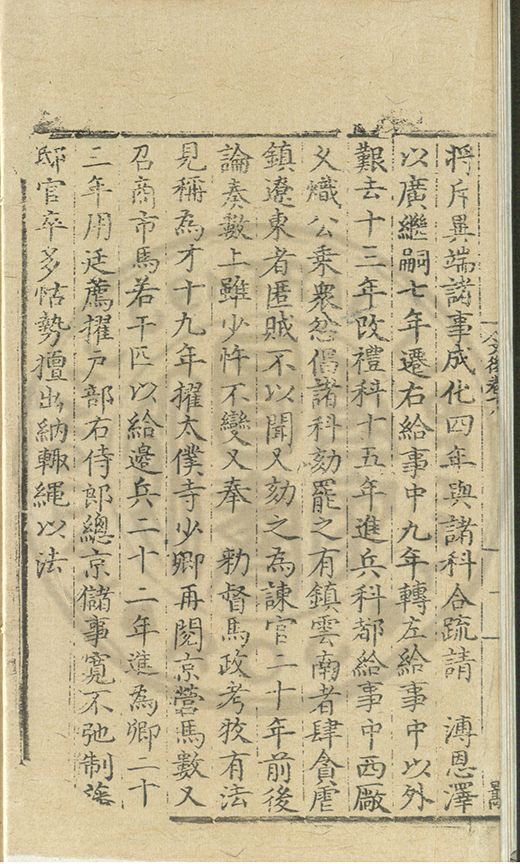 將斥異端諸事成化四年與諸科合疏請　溥恩澤
以廣繼嗣七年遷右給事中九年轉左給事中以外
艱去十三年改禮科十五年進兵科都給事中西厰
乆熾公乗衆忿倡諸科劾罷之有鎮雲南者肆貪虐
鎮遼東者匿賊不以聞又劾之為諫官二十年前後
論奏數上雖少忤不變又奉　勑督馬政考牧有法
見稱為才十九年擢太僕寺少卿再閱京營馬數又
召商市馬若干匹以給邊兵二十二年進為卿二十
三年用廷薦擢戸部右侍郎總京儲事寛不弛制
邸官卒多怙勢擅出納輙繩以法